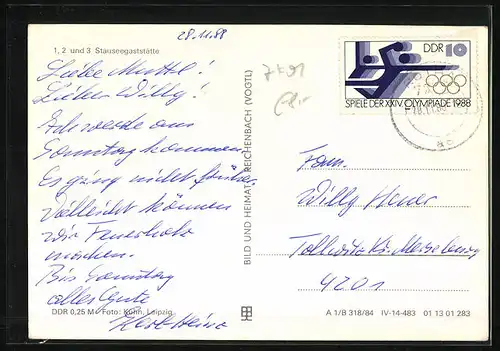 28.11.88
1, 2 und 3 Stauseegaststätte
Liebe Muttel!
Lieber Willy!
Ich werde am
Sonntag kommen.
Es ging nicht früher.
Vielleicht können
wir Feuerholz
machen.
Bis Sonntag
alles Gute
Karl-Heinz
DDR 0,25 M Foto: Kühn, Leipzig
BILD UND HEIMAT REICHENBACH (VOGTL)
DDR 10
SPIELE DER XXIV. OLYMPIADE 1988
Fam.
Willy
Tollwitz Kr. Merseburg
4201
A 1/B 318/84 IV-14-483 01 13 01 283